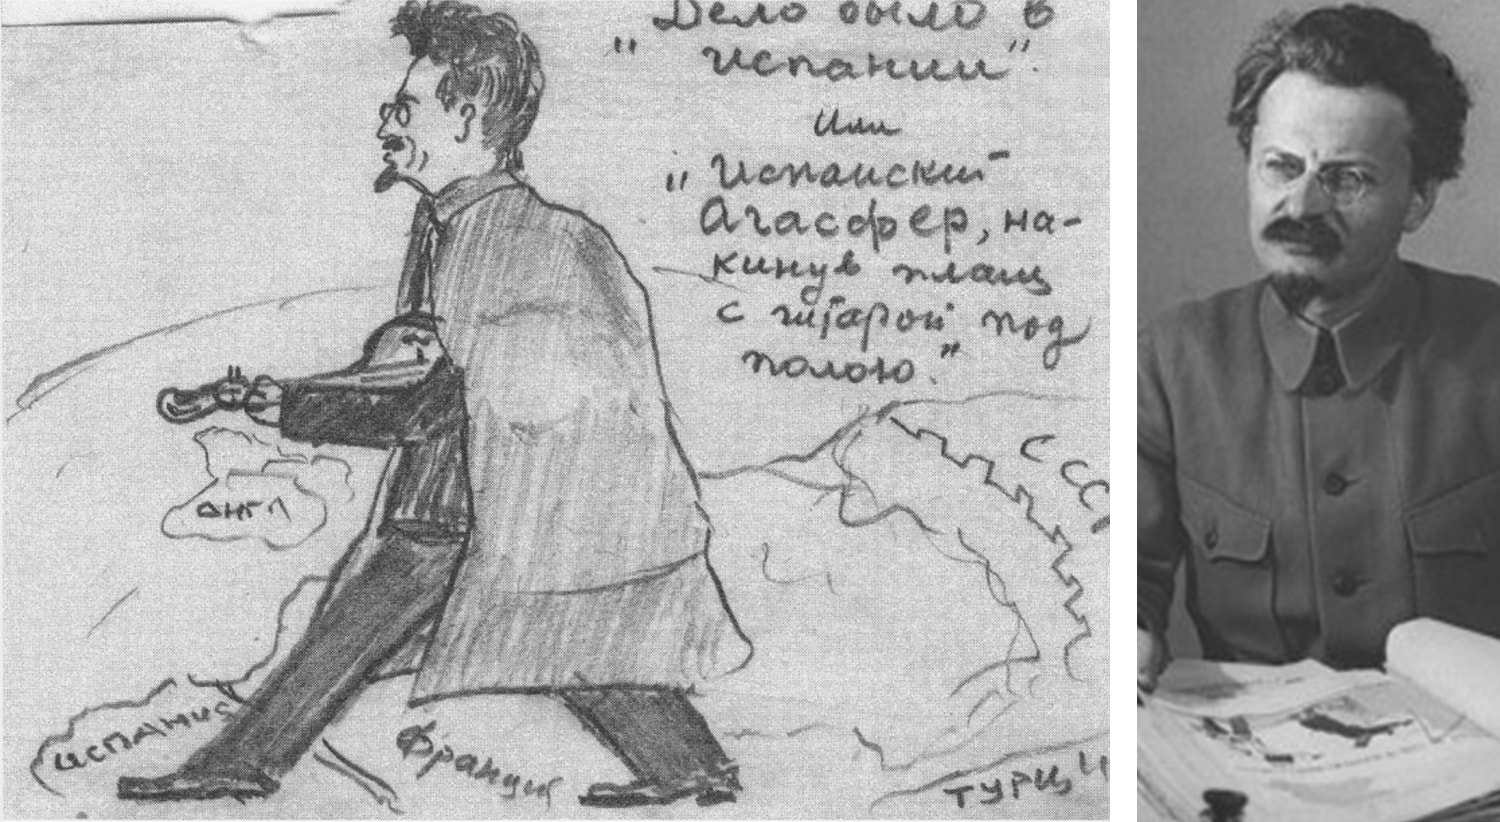 Дело было в
"Испании".
Или
"Испанский
Агасфер, на-
кинув плащ
с гитарой под
полою."
СССР
англ
Испания
Франция
ТУРЦИ